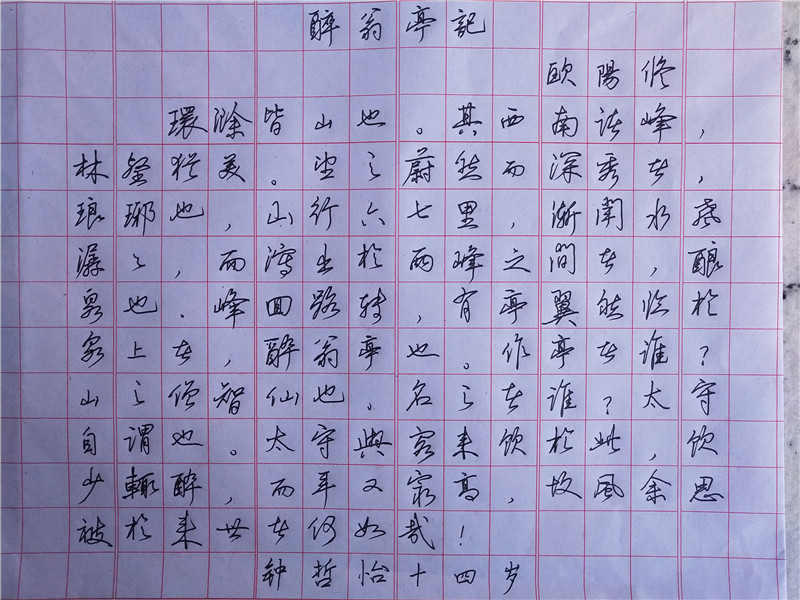 醉翁亭記
歐陽修
環滁皆山也。其西南諸峰，
林壑猶美。望之蔚然而深秀者，
琅琊也，山行六七里，漸聞水聲
潺々，而瀉出於兩峰之間者，釀
泉也．峰回路转，有亭翼然临於
泉上者，醉翁亭也。作亭者誰？
山之僧智仙也。名之者誰？太守
自謂也。太守與客来饮於此，饮
少輒醉，而年又最高，故風余思
被於来世者何如哉！
钟哲怡十四岁